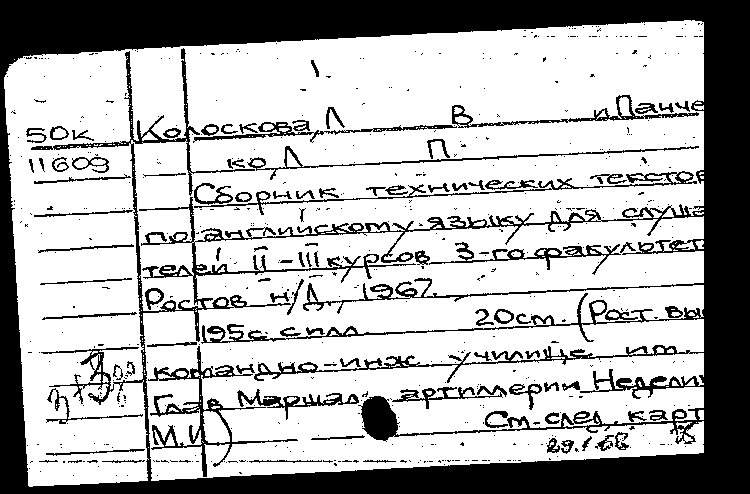 50к Колоскова, Л В и Панче
11609 ко, Л П.
Сборник технических текстов
по английскому языку для слуша
телей II-III курсов 3-го факультет
Ростов н/Д., 1967.
195 с. с илл. 20 см. (Рост. выс
командно-инж. училище им.
Глав. Маршала артиллерии Недели
М.И.)
См. след. карт
29.1.68